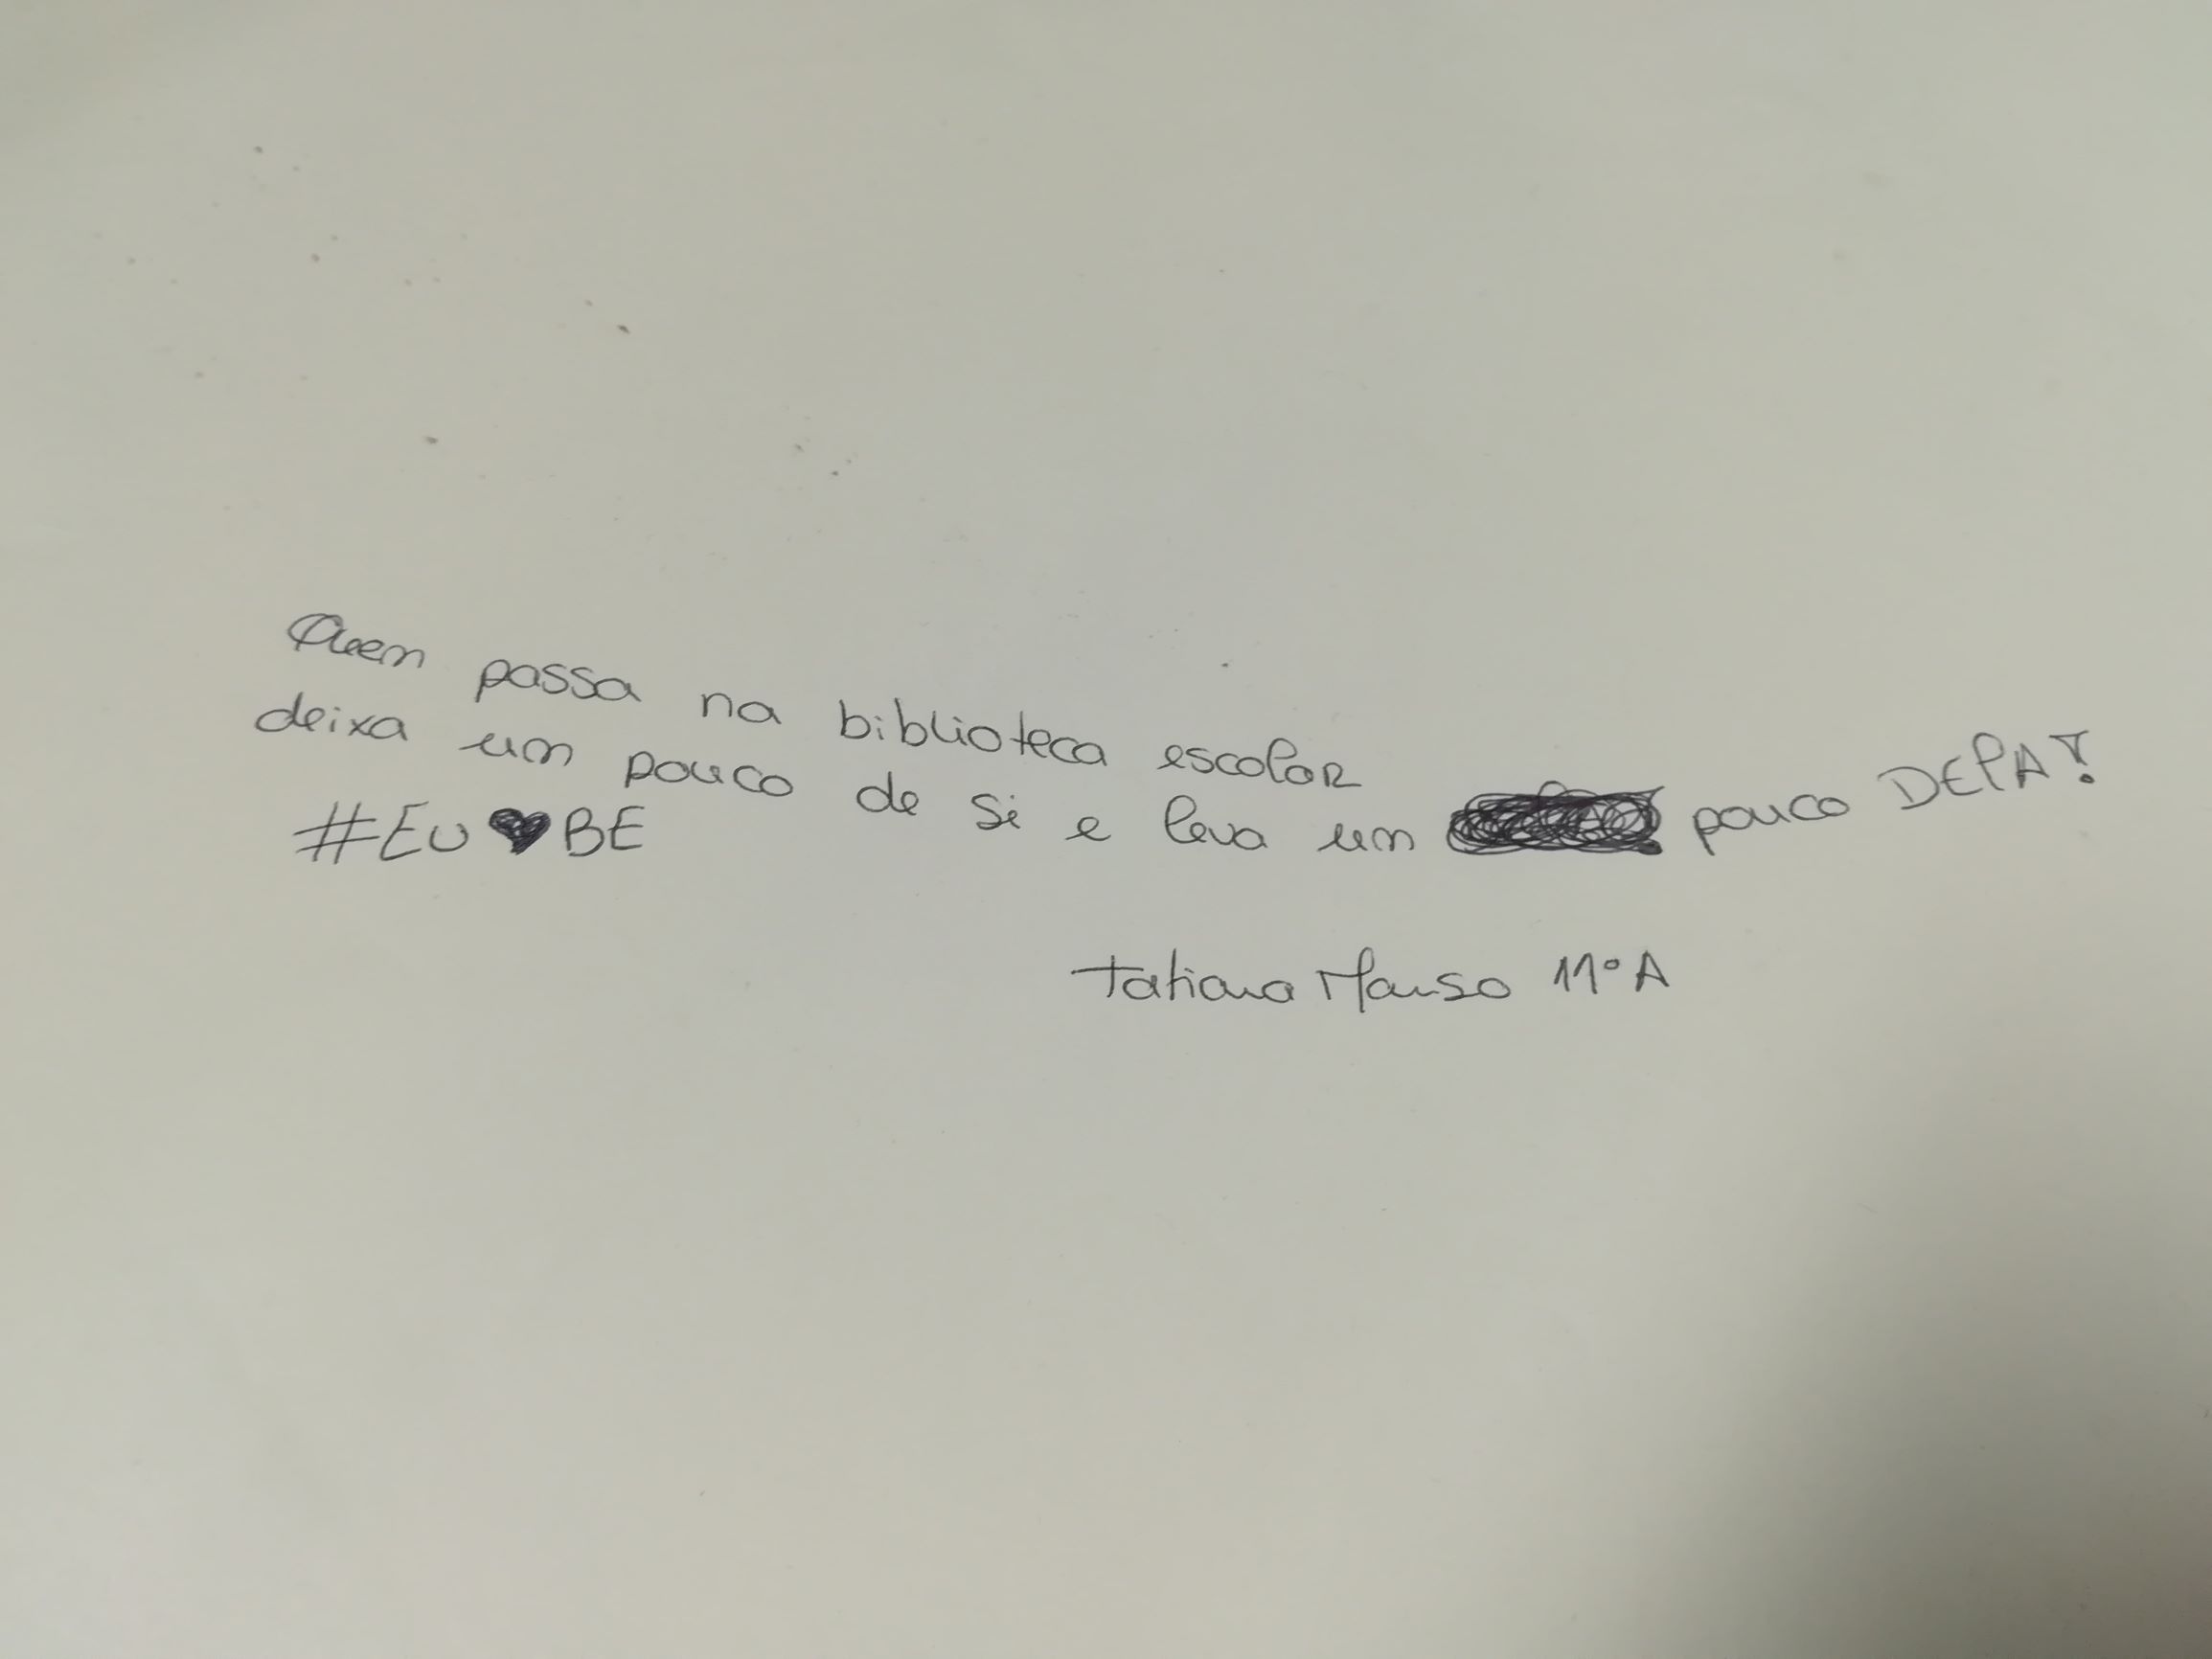 Quem passa na biblioteca escolar
deixa um pouco de si e leva um pouco DELA!
#EU ♥ BE
Tatiana Manso 11º A